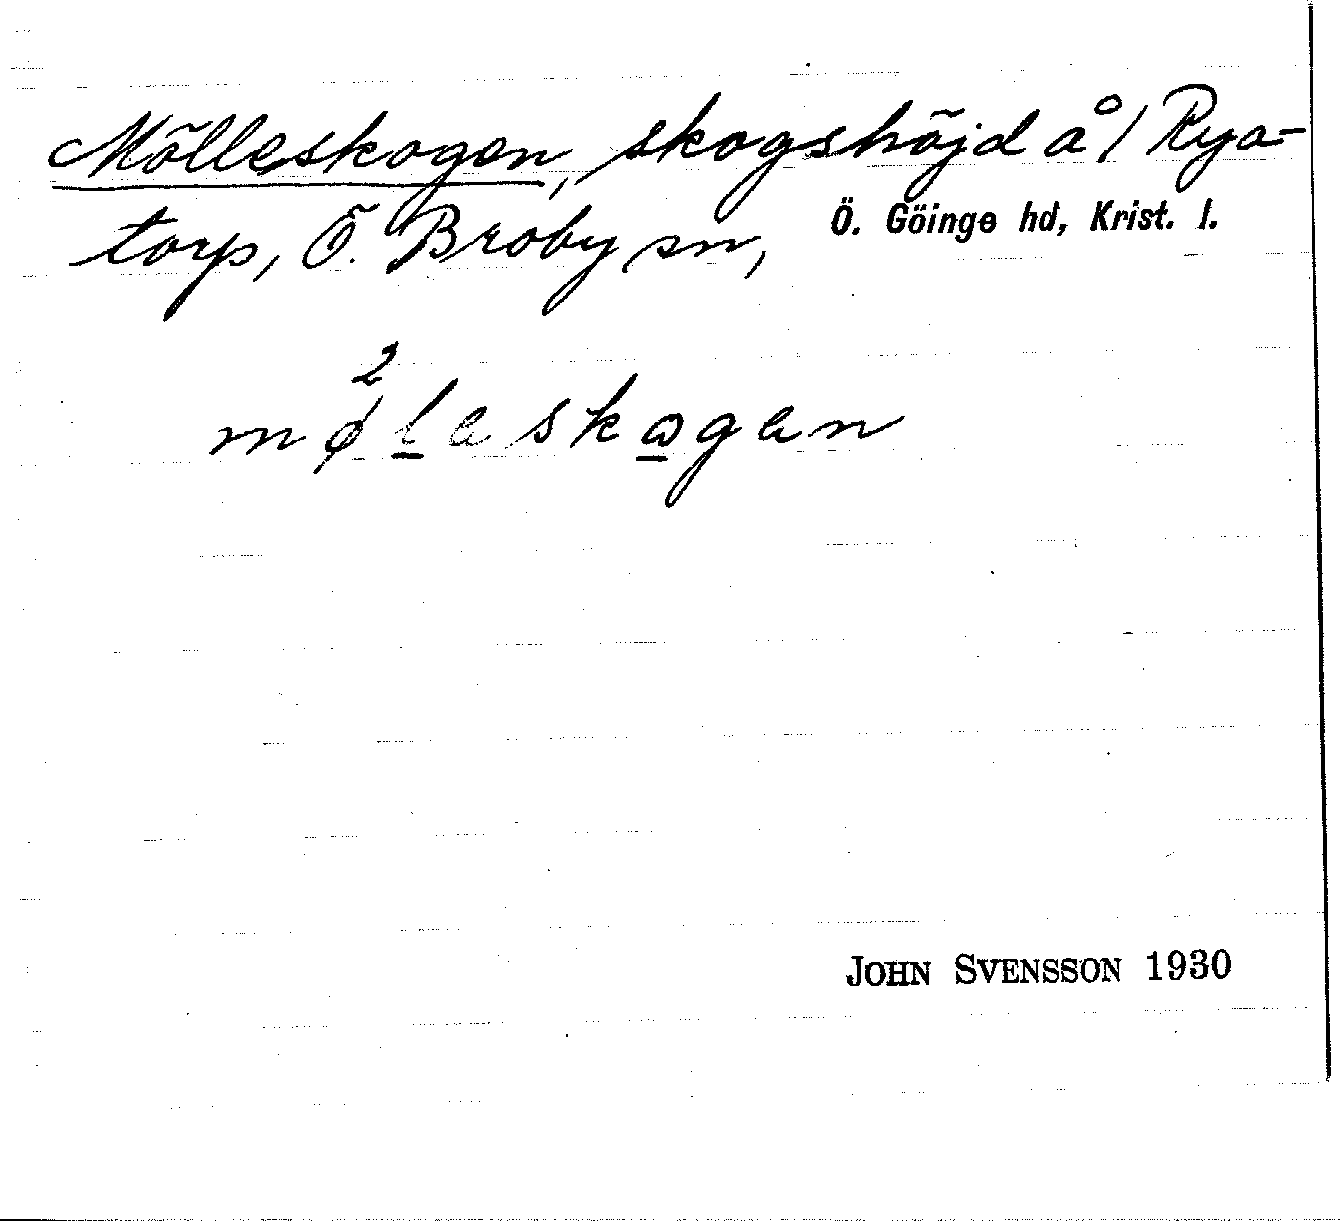 Mölleskogen, skogshöjd å/ Rya-
torp, Ö. Broby sn, Ö. Göinge hd, Krist. l.
2
møleskωgen
JOHN SVENSSON 1930